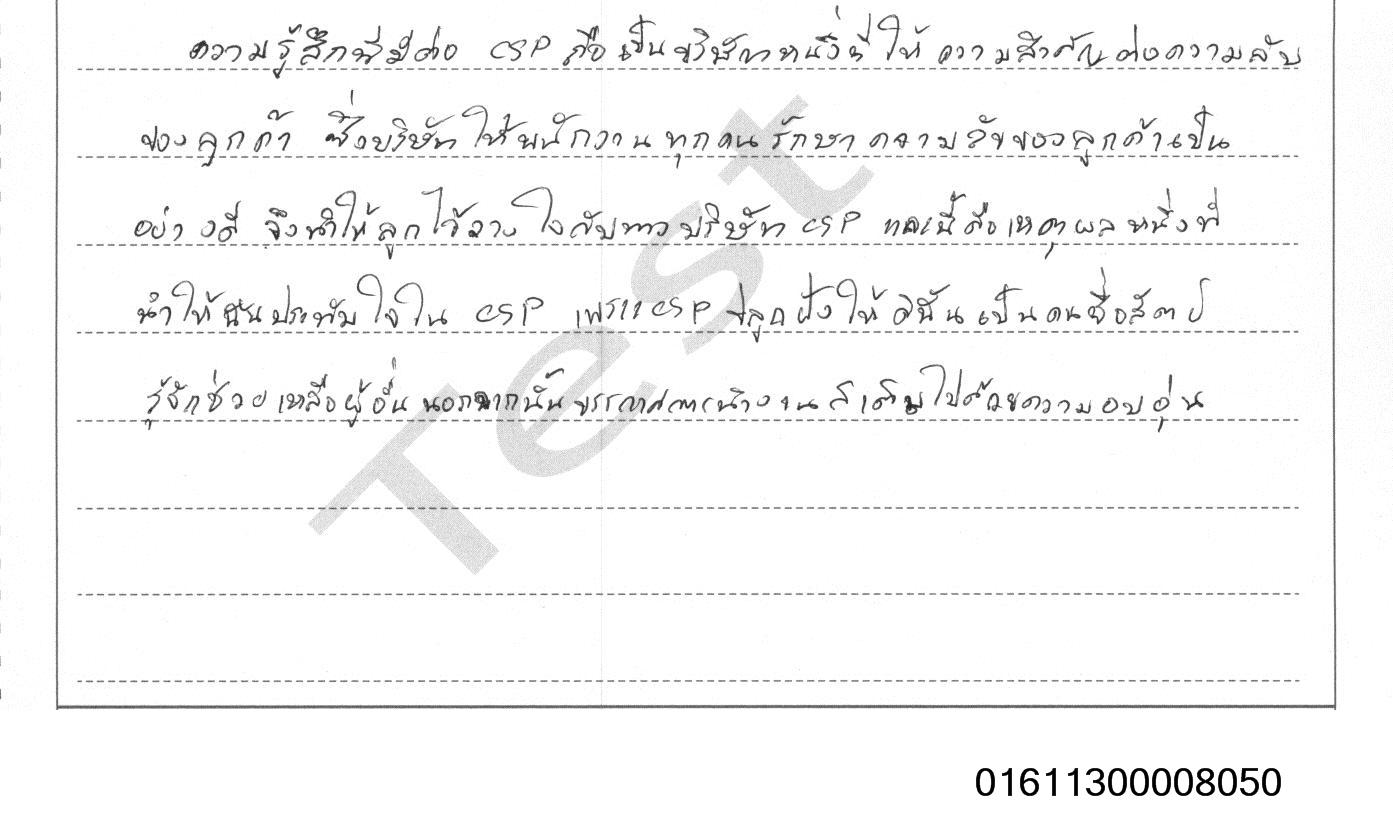 ความรู้สึกที่มีต่อ CSP คือเป็นบริษัทหนึ่งที่ให้ความสำคัญต่อความลับ
ของลูกค้า ซึ่งบริษัทให้พนักงานทุกคนรักษาความลับของลูกค้าเป็น
อย่างดี จึงทำให้ลูกไว้วางใจกับทางบริษัท CSP และนี้คือเหตุผลหนึ่งที่
ทำให้ฉันประทับใจใน CSP เพราะCSP ปลูกฝังให้ดิฉันเป็นคนซื่อสัตย์
รู้จักช่วยเหลือผู้อื่น นอกจากนั้นบรรยากาศการทำงานก็เต็มไปด้วยความอบอุ่น
Test
01611300008050